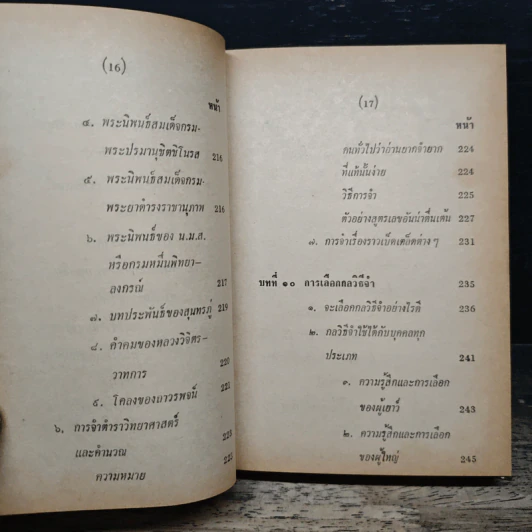 (16)
หน้า
๔. พระนิพนธ์สมเด็จกรม-
พระปรมานุชิตชิโนรส 216
๕. พระนิพนธ์สมเด็จกรม-
พระยาดำรงราชานุภาพ 216
๖. พระนิพนธ์ของ น.ม.ส.
หรือกรมหมื่นพิทยา-
ลงกรณ์ 217
๗. บทประพันธ์ของสุนทรภู่ 219
๘. คำคมของหลวงวิจิตร-
วาทการ 220
๙. โคลงของถาวรพจน์ 221
๖. การจำตำราวิทยาศาสตร์
และคำนวณ 223
ความหมาย
(17)
หน้า
คนทั่วไปว่าอ่านยากจำยาก 224
ที่แท้นั้นง่าย 224
วิธีการจำ 225
ตัวอย่างสูตรเลขอันน่าตื่นเต้น 227
๗. การจำเรื่องราวเบ็ดเตล็ดต่าง ๆ 231
บทที่ ๑๐ การเลือกกลวิธีจำ 235
๑. จะเลือกกลวิธีจำอย่างไรดี 236
๒. กลวิธีจำใช้ได้กับบุคคลทุก
ประเภท 241
๑. ความรู้สึกและการเลือก
ของผู้เยาว์ 243
๒. ความรู้สึกและการเลือก
ของผู้ใหญ่ 245